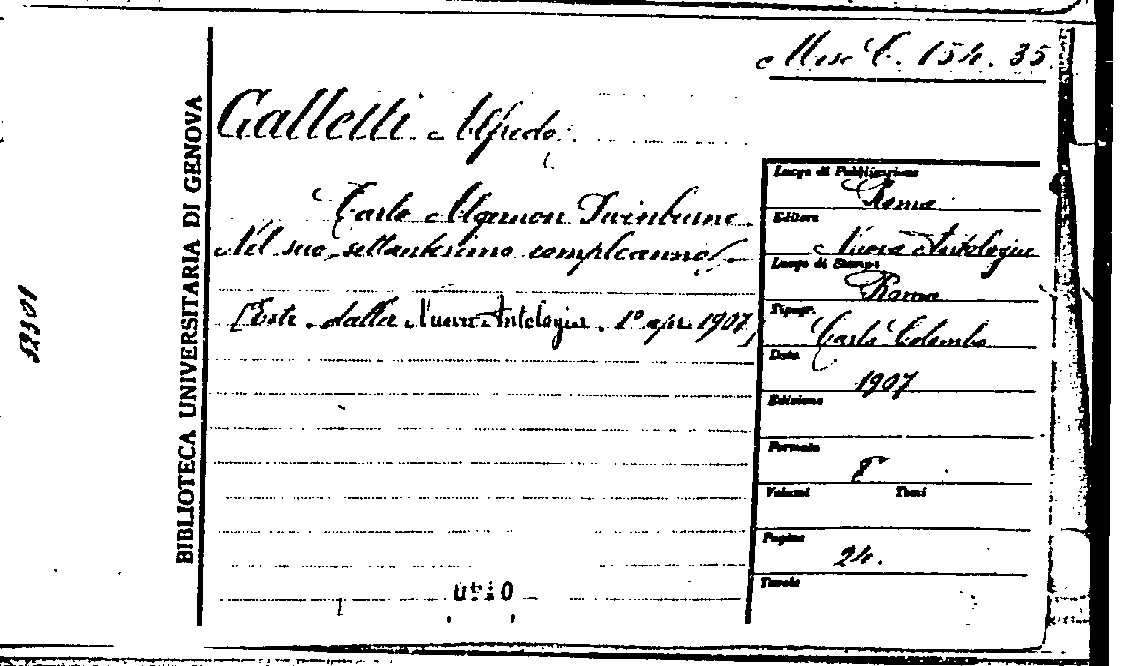 Misc E. 154. 35.
Galletti Alfredo.
Carlo Algernon Swinburne.
Nel suo settantesimo compleanno
[Estr. dalla Nuova Antologia. 1° apr. 1907]
BIBLIOTECA UNIVERSITARIA DI GENOVA
Luogo di Pubblicazione
Roma
Editore
Nuova Antologia
Luogo di Stampa
Roma
Tipogr.
Carlo Colombo
Data
1907
Edizione
Formato
8°
Volumi Tomi
Pagine
24.
Tavole